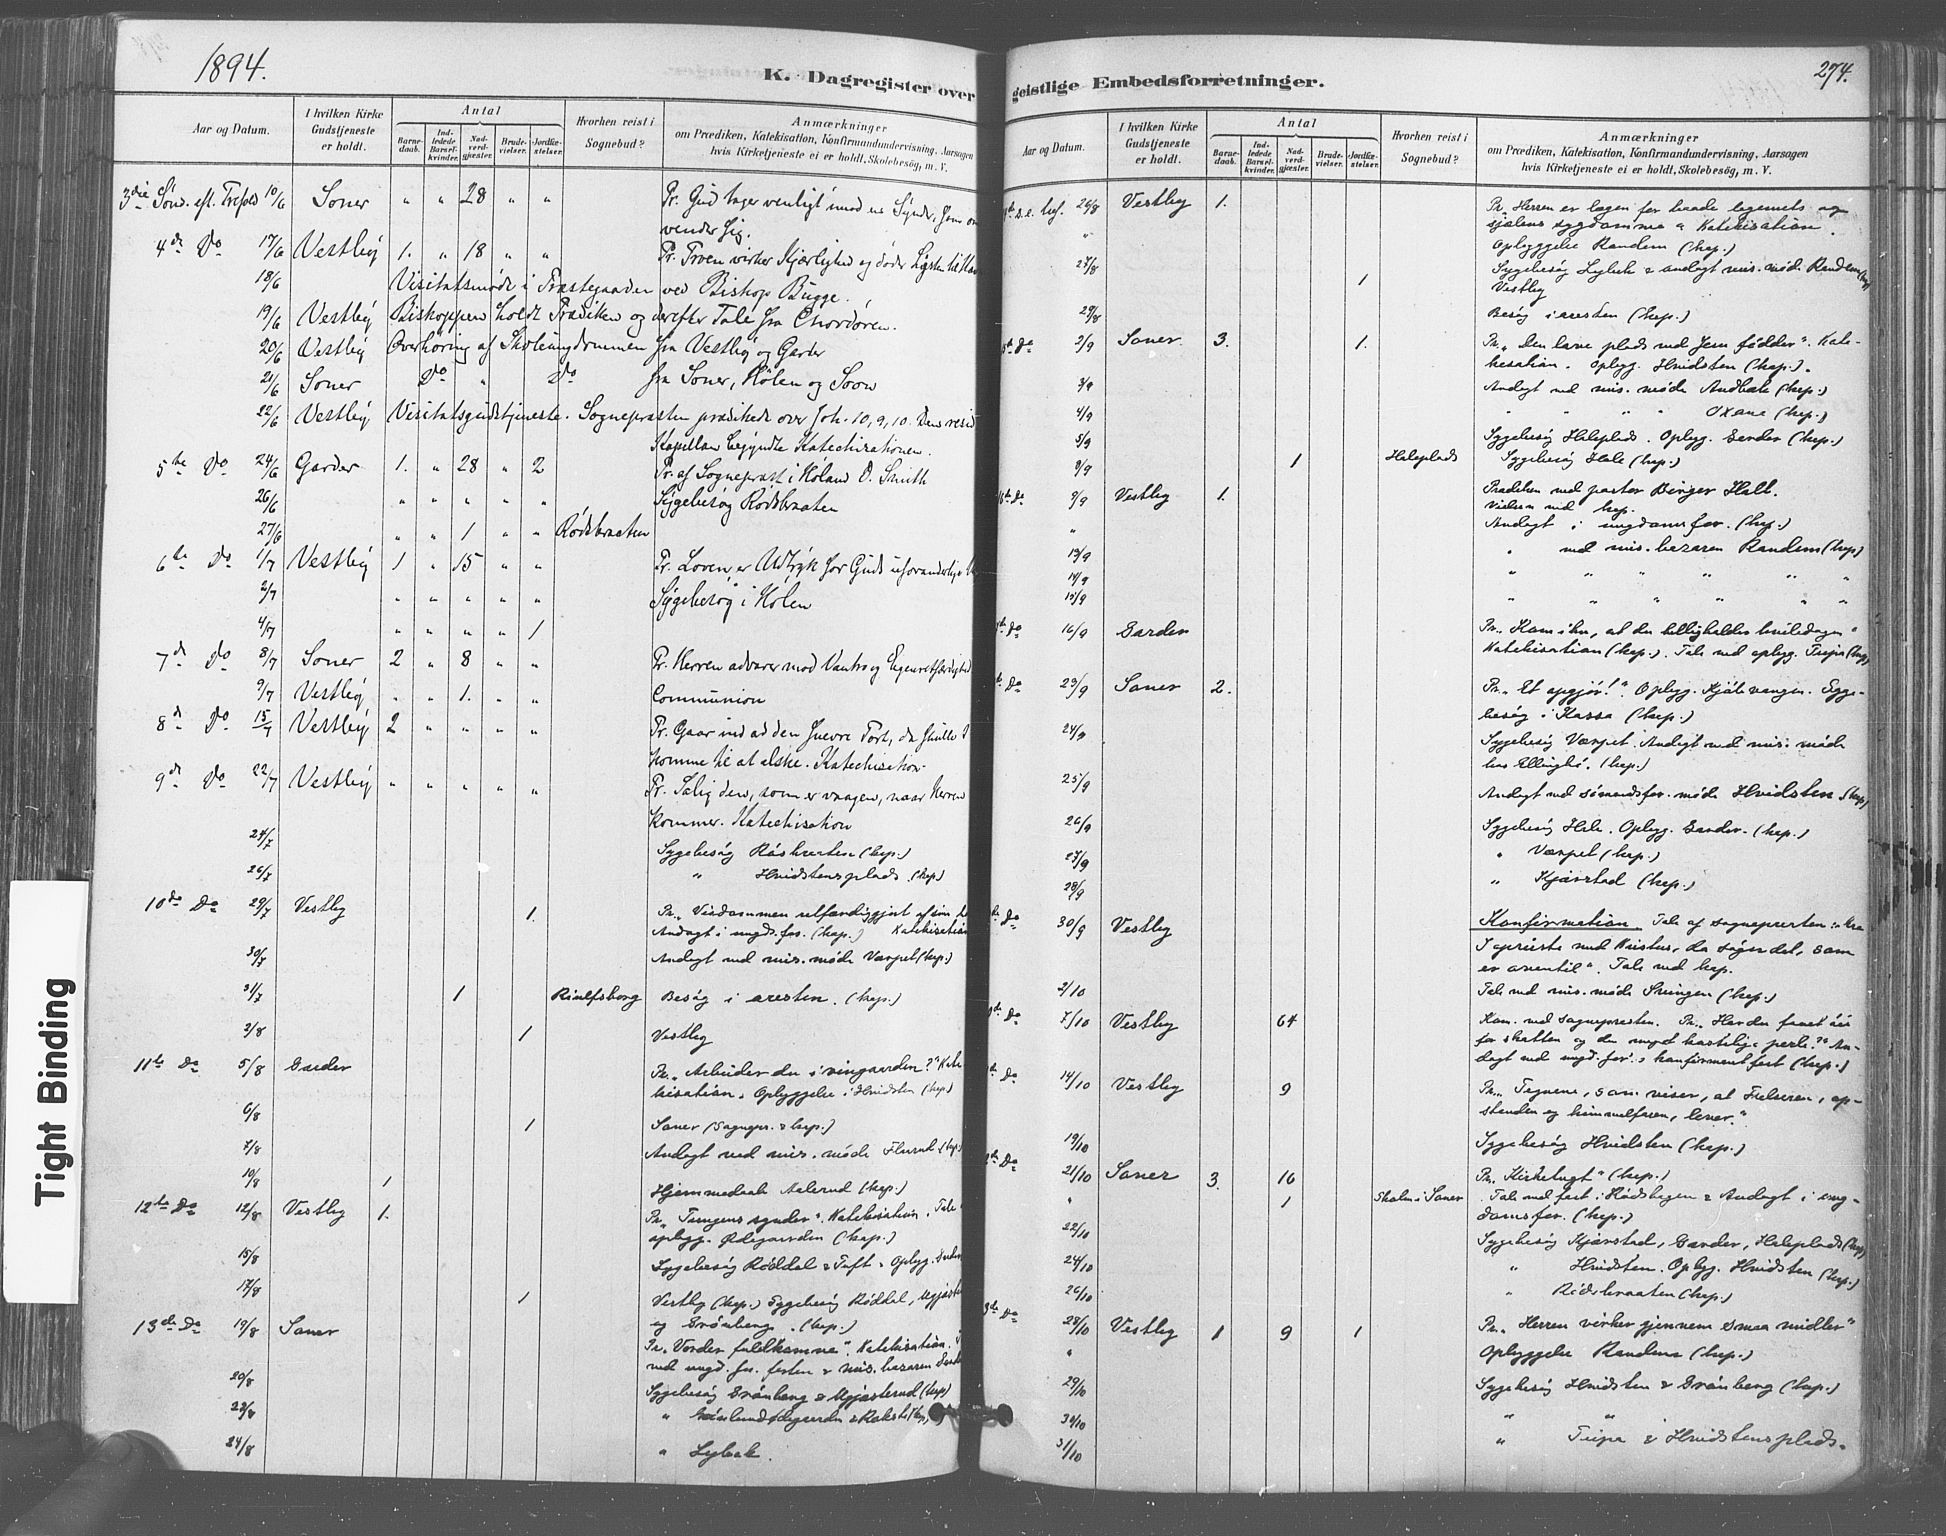 1894.
K. Dagregister over
Aar og Datum.
I hvilken Kirke Gudstjeneste er holdt.
Antal
Barnedaab.
Indledede Barselkvinder.
Nadverdgjæster.
Brudevielser.
Jordfæstelser.
Hvorhen reist i Sognebud?
Anmærkninger
om Prædiken, Katekisation, Konfirmandundervisning, Aarsagen
hvis Kirketjeneste ei er holdt, Skolebesög, m. V.
3die Sønd. eft. Trefold. 10/6 Soner " " 28 " " Pr. Gud tager venligt imod en Synder, som om
vender sig.
4de Do 17/6 Vestby 1. " 18 " " Pr. Troen virker Kjærlighed og døder
18/6 Visitatsmøde i Præstegaarden ved Biskop Bugge.
19/6 Vestby Biskoppen holdt Prædiken og derefter Tale fra Chordøren.
20/6 Vestby Overhøring af Skoleungdommen fra Vestby og Garder
21/6 Soner Do " Do fra Soner, Hølen og Soon
22/6 Vestby Visitatsgudstjeneste. Sognepræsten prædikede over Joh. 10, 9, 10. Den resid
Kapellan begyndte Katechisationen.
5te Do 24/6 Garder 1. " 28 " 2 Pr. af Sognepræst i Høland O. Smith
26/6 " " " " " Sygebesøg Rødsbraaten
27/6 " " 1 " " Rødsbraaten
6te Do 1/7 Vestby 1 " 15 " " Pr. Loven er Udtryk for Guds uforanderlige
2/7 " " " " " Sygebesøg i Hølen
4/7 " " " " 1
7de Do 8/7 Soner 2 " 8 " " Pr. Herren advarer mod Vantro og Egenretfærdighed
9/7 Vestby " " 1. " " Communion
8de Do 15/7 Vestby 2 " " " " Pr. Gaar ind ad den snevre Port, da skulle I
komme til at elske. Katechisation.
9de Do 22/7 Vestby " " " " " Pr. Salig den, som er vaagen, naar Herren
kommer. Katechisation
24/7 Sygebesög (kap.)
26/7 " Hvidstensplads (kap.)
10de Do 29/7 Vestby 1. Pr. "Visdommen retfærdiggjort af sine
Andagt i ungd.for. (kap.) Katekisation
30/7 Andagt ved mis. møde Værpet (kap.)
31/7 1 Besög i aresten. (kap.)
2/8 1 Vestby
11te Do 5/8 Garder Pr. "Arbeider du i vingaarden?" Kate
kisation. Opbyggelse i Hvidsten (kap.)
6/8 1 Soner (sognepr. & kap.)
7/8 Andagt ved mis. møde (kap.)
10/8 1 Hjemmedaab Aalerud (kap.)
12te Do 12/8 Vestby 1. Pr. "Tungens synder". Katekisation. Tale
opbygg. Ødegaarden (kap.)
15/8 Sygebesög Röddal & Tuft. Opbyg.
17/8 1 Vestby (kap.) Sygebesög Röddal,
og Grönberg. (kap.)
13de Do 19/8 Soner Pr. "Vorder fuldkomne". Katekisation.
ved ungd. for. festen & mis. bazaren
20/8 Sygebesög Grönberg & (kap)
23/8 "
24/8 " Lybæk.
geistlige Embedsforretninger.
274.
Aar og Datum.
I hvilken Kirke Gudstjeneste er holdt.
Antal
Barnedaab.
Indledede Barselkvinder.
Nadverdgjæster.
Brudevielser.
Jordfæstelser.
Hvorhen reist i Sognebud?
Anmærkninger
om Prædiken, Katekisation, Konfirmandundervisning, Aarsagen
hvis Kirketjeneste ei er holdt, Skolebesög, m. V.
26/8 Vestby 1. Pr. "Herren er lægen for baade legemets og
sjælens sygdomme". Katekisation.
" Opbyggelse Randem (kap.)
27/8 1 Sygebesög Lybæk & andagt mis. möd. Randem (kap)
Vestby
29/8 Besög i aresten (kap.)
Do 2/9 Soner 3. 1. Pr. "Den lave plads ved Jesu fødder". Kate-
kesation. Opbygg. Hvidsten (kap.).
3/9 Andagt ved mis. møde Andbæk (kap.)
4/9 " " " " (kap.)
5/9 Sygebesög Haleplads. Opbyg. Garder (kap.)
8/9 1 Haleplads Sygebesög Hale (kap.)
Do 9/9 Vestby 1. Prædiken ved pastor Birger Hall.
Vielsen ved kap.
" Andagt i ungdomsfor. (kap.)
13/9 " ved mis. bazaren Randem (kap)
14/9 " " " " " "
15/9 " " " " " "
Do 16/9 Garder Pr. "Kom ihu, at du helligholder hviledagen"
Katekisation (kap.). Tale ved opbyg. Tripa (kap)
Do 23/9 Soner 2. Pr. "Et opgjör!". Opbyg. Kjölevangen. Syge-
besög i Kassa (kap.)
24/9 Sygebesög Værpet. Andagt ved mis. møde
hos (kap.)
25/9 Andagt ved sömandsfor. møde Hvidsten (kap)
26/9 Sygebesög Hale. Opbyg. Garder. (kap.)
27/9 " Værpet (kap.)
28/9 " Kjærstad (kap.)
Do 30/9 Vestby Konfirmation. Tale af sognepresten:
I opreiste med Kristus, da søger det, som
er oventil". Tale ved kap.
2/10 Tale ved mis. møde (kap.)
Do 7/10 Vestby 64 Kom. ved sognepresten. Pr. "Har du faaet öie
for skatten og den meget kostelige perle?" An-
dagt ved ungd. for.s konfirmantfest (kap.)
Do 14/10 Vestby 9 Pr. "Tegnene, som viser, at Frelseren, op-
standen og himmelfaren, lever."
19/10 Sygebesög Hvidsten (kap.)
Do 21/10 Soner 3. 16 Pr. "Kirketugt" (kap.)
" 1 Skolen i Soner Tale ved fest i & Andagt i ung-
domsfor. (kap.)
22/10 Sygebesög Kjærstad, Garder, Haleplads (kap)
24/10 " Hvidsten. Opbyg. Hvidsten (kap.)
26/10 " Rødsbraaten (kap.)
Do 28/10 Vestby 1 9 1 Pr. "Herren virker gjennem smaa midler"
" Opbyggelse Randem (kap.)
29/10 Sygebesög Hvidsten & Grönberg (kap.)
30/10 " "
31/10 " Tripa & Hvidstensplads.
Tight Binding